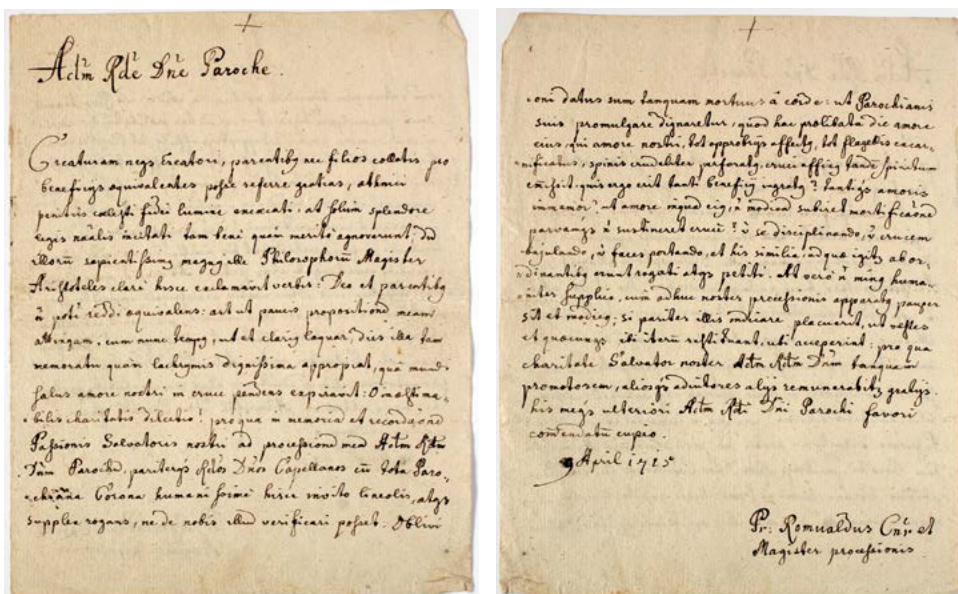 +
Adm̃ Rde Dn̄e Paroche.
Creaturam neq3 Creatori, parentibq nec filios collatis pro
beneficijs æquivalentes posse referre gratias, athnici
penitus cœlesti fidei lumine exœcati: at solum splendore
legis nãalis incitati tam bene quàm meritò agnoverunt; Dū
illorū sapientissimq magnq ille Philosophorū Magister
Aristoteles clari hisce exclamavit verbis: Deo et parentibq
ñ poti reddi æquivalens: ast ut paucis propositionē meam
attingam, cum nunc tempq, ut et clariq loquar, dies illa tam
memoratu quàm lachrymis dignissima appropiat, quâ mundi
salus amore nostri in cruce pēdens expiravit: O inæstima-
bilis charitatis dilectio! pro qua in memoriā et recordãonē
Passionis Salvatoris nostri ad processionē meā Adm̃ Rdm̃
Dnm̃ Parochū, pariterq3 Rdos Dnos Capellanos cū tota Paro-
chiana Corona humanissimè hisce invito lineolis, atq3
supplex rogans, ne de nobis illud verificari posset: Oblivi
+
oni datus sum tanquam mortuus â corde: ut Parochianis
suis promulgare dignaretur, quòd hac prolibata die amore
eius, qui amore nostri, tot opprobrijs affectq, tot flagellis excar-
nificatus, spinis crudeliter perforatq, cruci affixq tandē spiritum
emisit: quis ergo erit tanti beneficij ingratq? tantiq3 amoris
immemor? at amore inquā eiq, ñ modicā subiret mortificãonē
parvamq3 ñ sustineret crucē? v̄ se disciplinando, v̄ crucem
bajulando, v̄ faces portando, et his similia, ad quæ igitq ab or-
dinantibq erunt rogati atq3 petiti. At verò ñ minq huma-
niter supplico, cum adhuc noster processionis apparatq pauper
sit et modicq, si pariter illis indriare placuerit, ut vestes
et quæcunq3 sibi iterū restituant, uti acceperint: pro qua
charitate Salvator noster Adm̃ Rdm̃ Dnm̃ tanquam
promotorem, aliosq3 adiutores alijs remunerabit gratijs.
his meq3 ulteriori Adm̃ Rdi Dni Parochi favori
com̃endatū cupio.
9 April 1715
Pr: Romualdus Cnr et
Magister processionis.